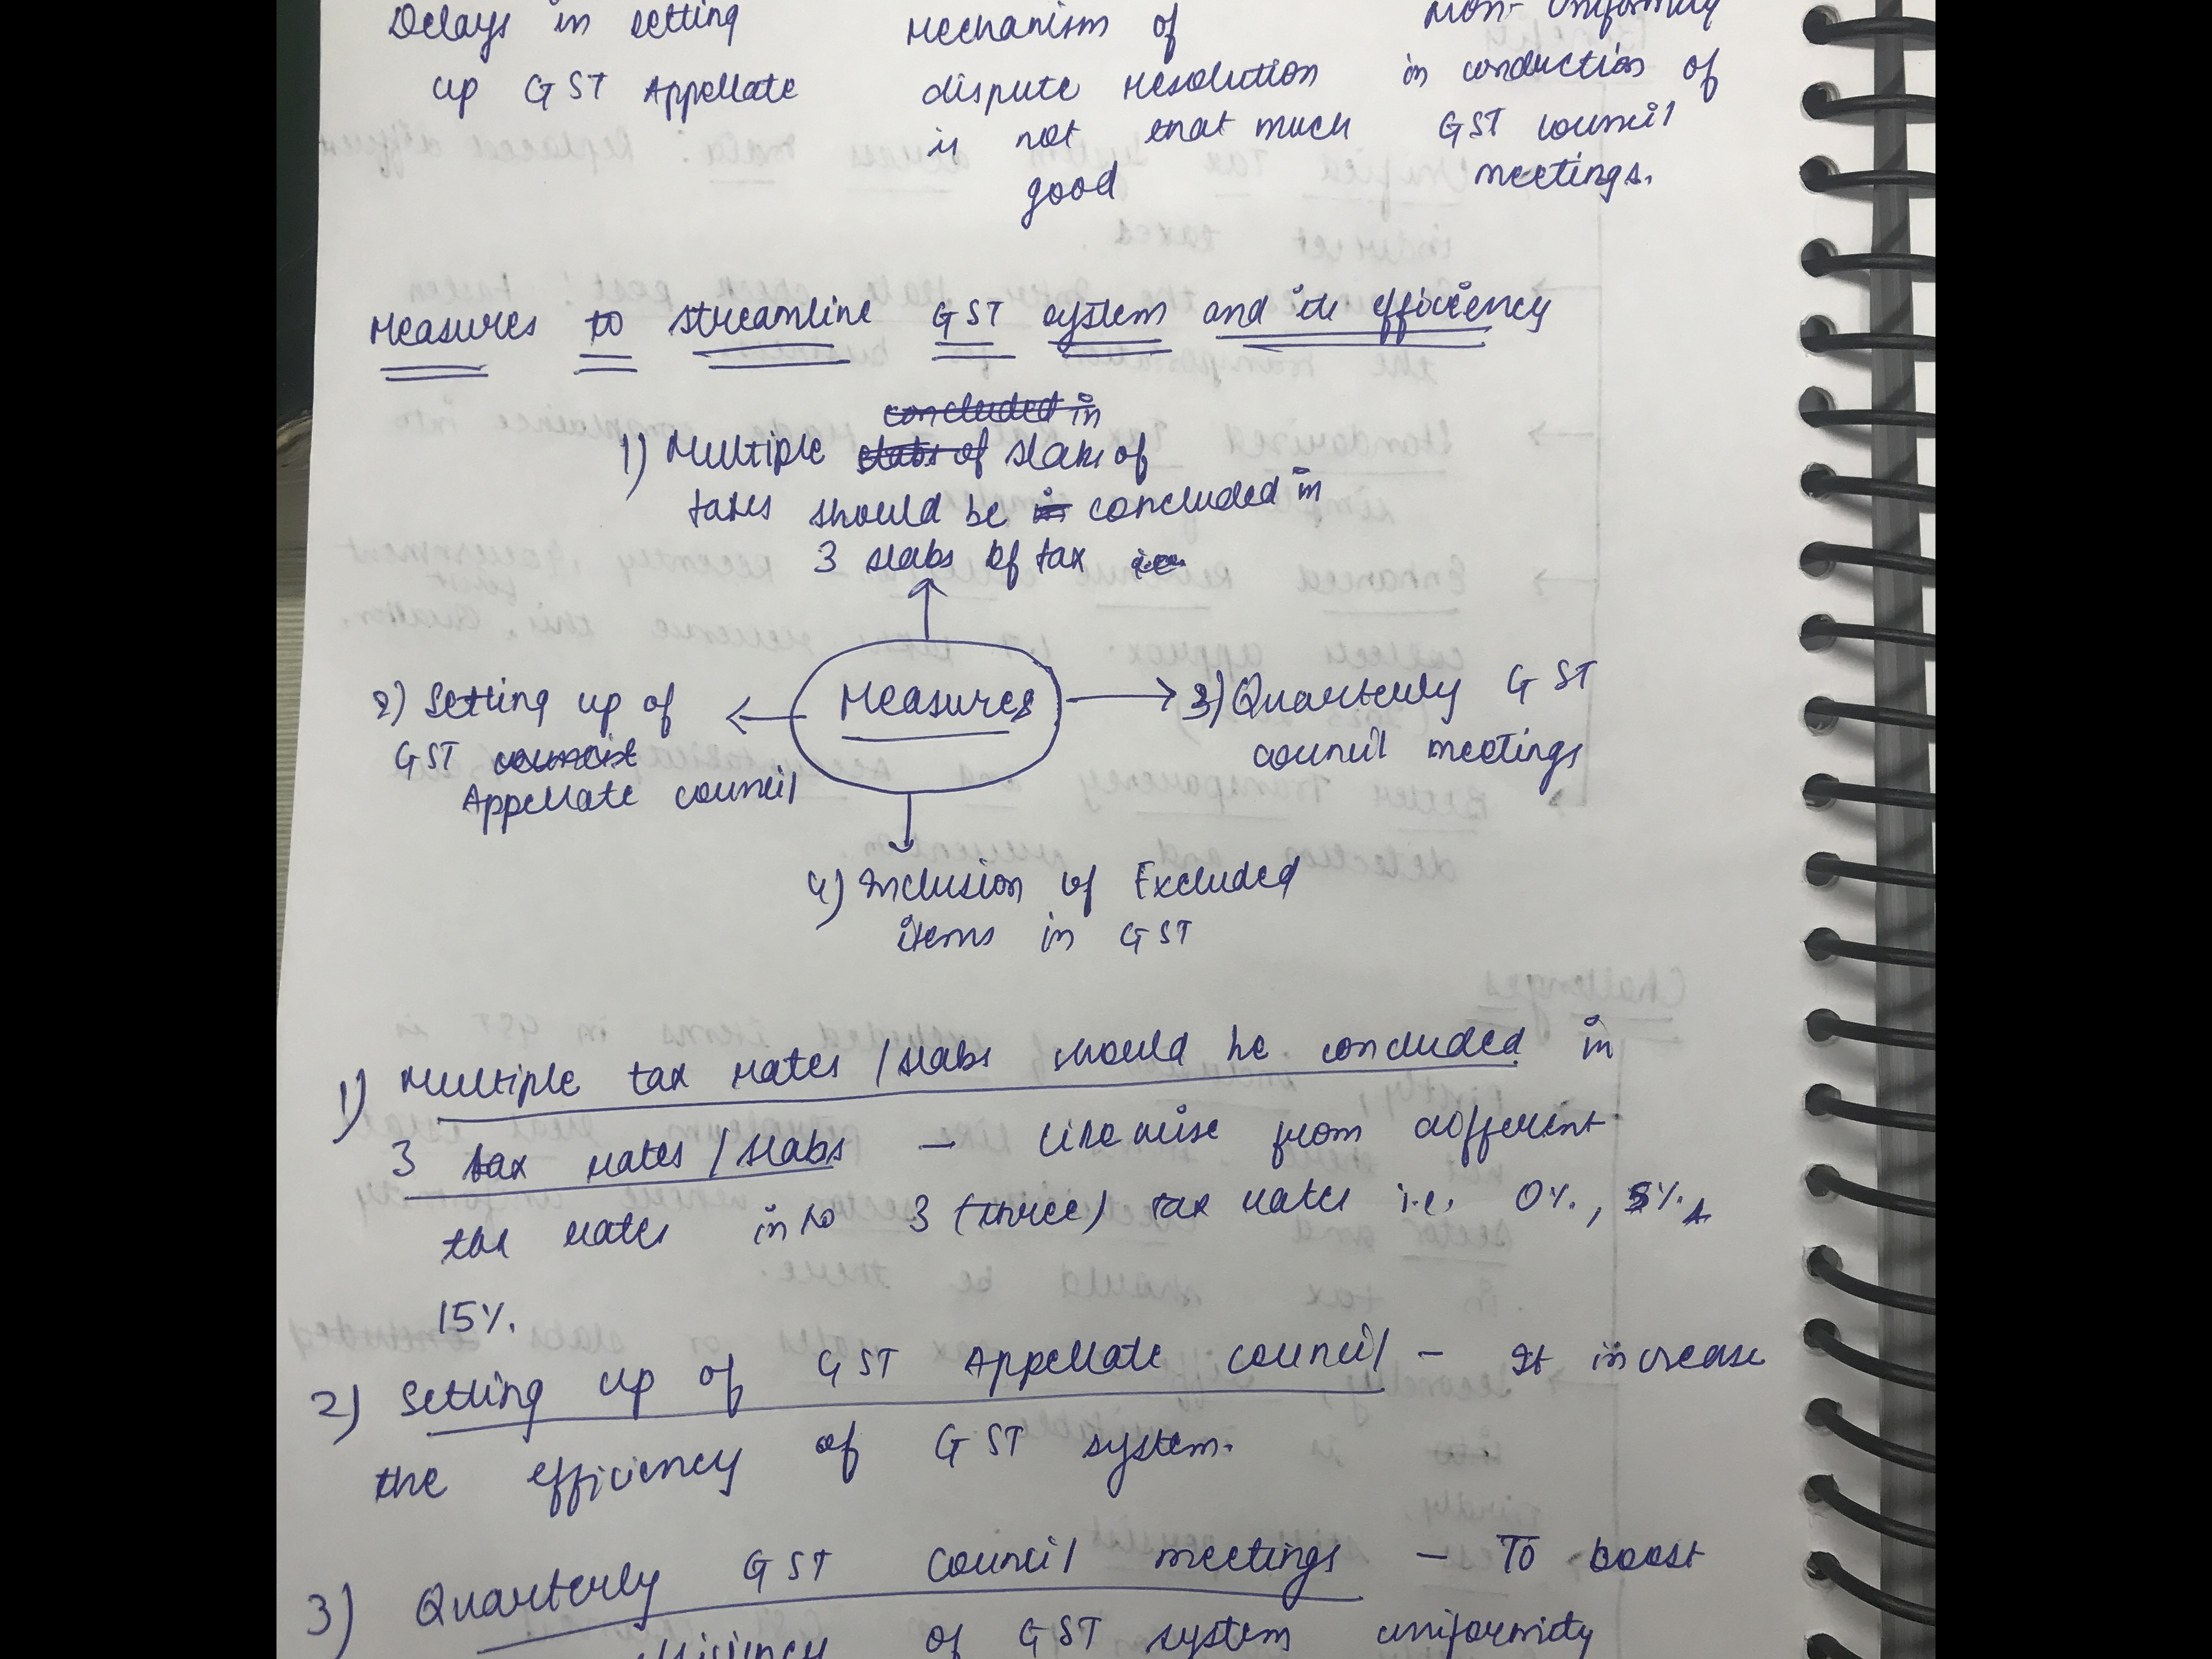 Delays in setting
up GST Appellate
Mechanism of
dispute resolution
is not that much
good
Non-Uniformity
in conduction of
GST council
meetings.
Measures to streamline GST system and its efficiency
concluded in
1) Multiple slabs of slabs of
taxes should be in concluded in
3 slabs of tax i.e.
2) Setting up of
GST council
Appellate council
Measures
3) Quarterly GST
council meetings
4) Inclusion of Excluded
items in GST
1) Multiple tax rates / slabs should be concluded in
3 tax rates / slabs — likewise from different
tax rates into 3 (three) tax rates i.e. 0%, 5%
15%.
2) Setting up of GST Appellate council – It increase
the efficiency of GST system.
3) Quarterly GST council meetings – To boost
efficiency of GST system uniformity